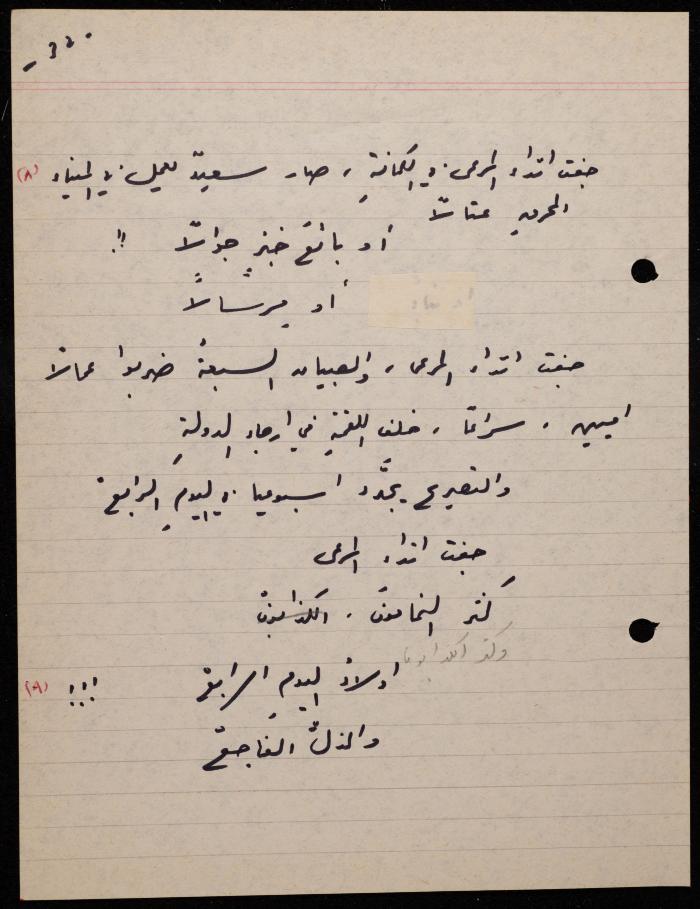 - ٣٢ -
جفت اثداء المرعى في الكمانةِ ، صار سعيدٌ يعمل في الميناء (٨)
المحروقِ عتالاً
أو بائعَ خبزٍ جوالاً !!
أو مرسالاً
جفت اثداء المرعى ، والصبيان السبعةُ ضربوا عمالاً
اميين ، سراعًا ، خلف اللقمةِ في ارجاء الدولةِ
والتصريح يجدَّد اسبوعيا في اليومِ الرابعْ
جفت اثداء المرعى
كَثر النمامونَ ، الكذابونْ
وكثر الكذابونا
اولادُ اليومِ الرابعْ !!! (٩)
والذلُّ الفاجعْ